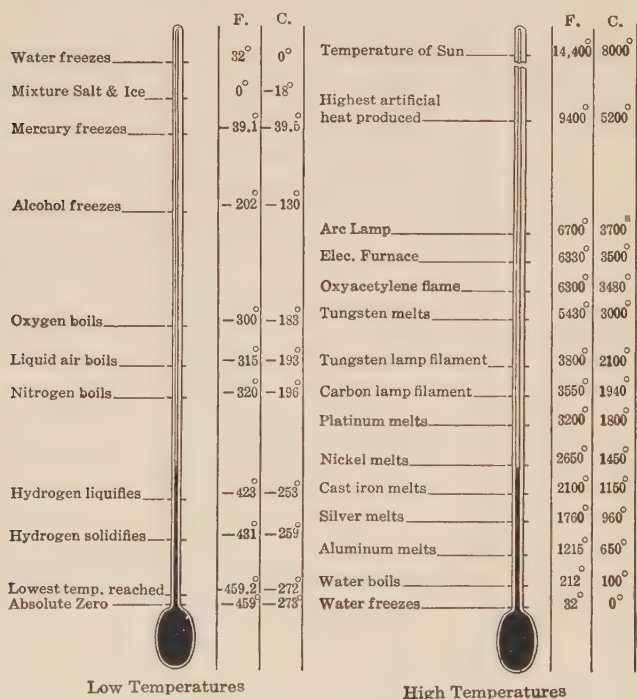 F. C.
Water freezes 32° 0°
Mixture Salt & Ice 0° -18°
Mercury freezes -39.1° -39.5°
Alcohol freezes -202° -130°
Oxygen boils -300° -183°
Liquid air boils -315° -193°
Nitrogen boils -320° -196°
Hydrogen liquifies -423° -253°
Hydrogen solidifies -431° -259°
Lowest temp. reached -459.2° -272°
Absolute Zero -459° -273°
Low Temperatures
F. C.
Temperature of Sun 14,400° 8000°
Highest artificial
heat produced 9400° 5200°
Arc Lamp 6700° 3700°
Elec. Furnace 6330° 3500°
Oxyacetylene flame 6300° 3480°
Tungsten melts 5430° 3000°
Tungsten lamp filament 3800° 2100°
Carbon lamp filament 3550° 1940°
Platinum melts 3200° 1800°
Nickel melts 2650° 1450°
Cast iron melts 2100° 1150°
Silver melts 1760° 960°
Aluminum melts 1215° 650°
Water boils 212° 100°
Water freezes 32° 0°
High Temperatures